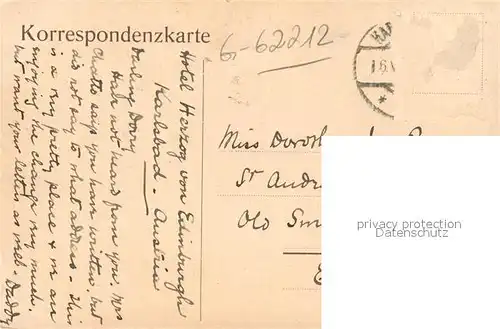 Korrespondenzkarte
6-62212
Hotel Herzog von Edinburgh
Karlsbad - Austria
Darling Dory
Have not heard from you. Mrs
Chatto says you have written. but
did not say to what address. This
is a very pretty place & m am
enjoying the change very much.
but want your letters as well. Daddy
Miss Doroth
St Andr
Old Sm
privacy protection
Datenschutz